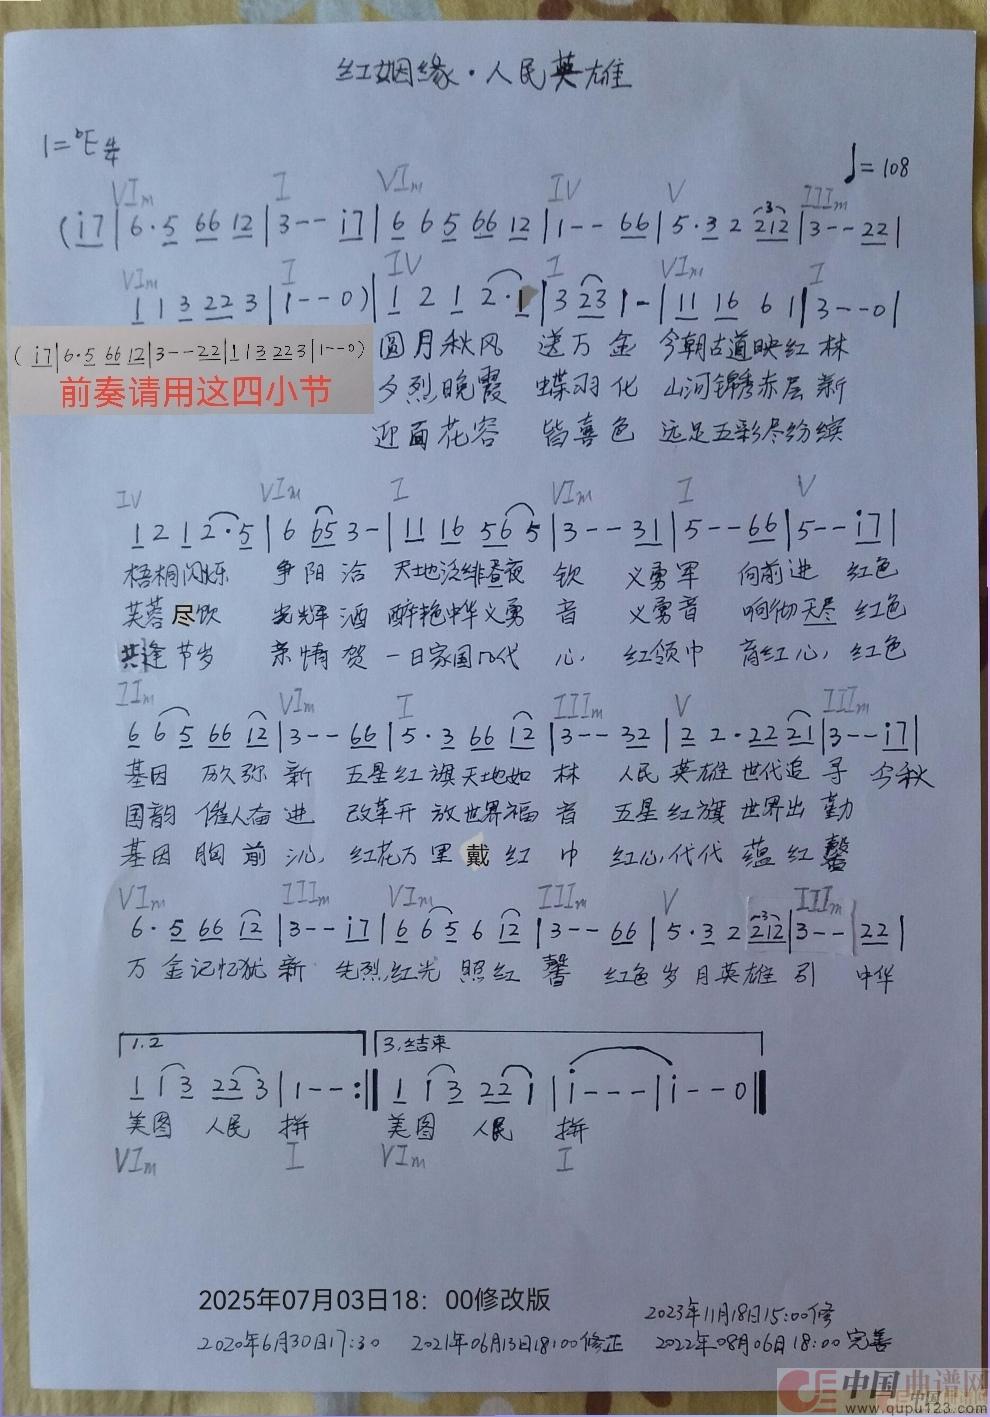 红姻缘·人民英雄
1=♭E 4/4
♩=108
VIm I VIm IV V IIIm
(i7|6·5 66 12|3-- i7|6 6 5 66 12|1-- 66|5·3 2 212|3-- 22|
VIm I IV I VIm I
1 1 3 22 3|1--0)|1 2 1 2·1|3 23 1-|11 16 6 1|3--0|
(i7|6·5 66 12|3--22|1 1 3 22 3|1--0)
前奏请用这四小节
圆月秋风 送万金 今朝古道映红林
夕烈晚霞 蝶羽化 山河锦绣赤层新
迎面花容 皆喜色 远足五彩尽纷缤
IV VIm I VIm I V
1 2 1 2·5|6 65 3-|11 16 56 5|3-- 31|5-- 66|5-- i7|
梧桐闪烁 争阳洽 天地泛绯昼夜钦 义勇军 向前进 红色
芙蓉尽饮 光辉酒 醉艳中华义勇音 义勇音 响彻天尽 红色
共逢节岁 亲情贺 一日家国几代心, 红领巾 育红心, 红色
IIm VIm I IIIm V IIIm
6 6 5 66 12|3-- 66|5·3 66 12|3-- 32|2 2·22 21|3-- i7|
基因 历久弥新 五星红旗天地如林 人民英雄世代追寻 今秋
国韵 催人奋进 改革开放世界福音 五星红旗世界出勤
基因 胸前沁, 红花万里戴红巾 红心,代代蕴红馨
VIm IIIm VIm IIIm V IIIm
6·5 66 12|3-- i7|6 6 5 6 12|3-- 66|5·3 2 212|3-- 22|
万金记忆犹新 先烈,红光照红馨 红色岁月英雄引 中华
1.2 3.结束
1 1 3 22 3|1--:‖1 1 3 22 1|i---|i--0‖
美图 人民 拼 美图 人民 拼
VIm I VIm I
2025年07月03日18：00修改版
2023年11月18日15:00修
2020年6月30日17:30 2021年06月13日18:00修正 2022年08月06日18:00完善
中国曲谱网
www.qupu123.com